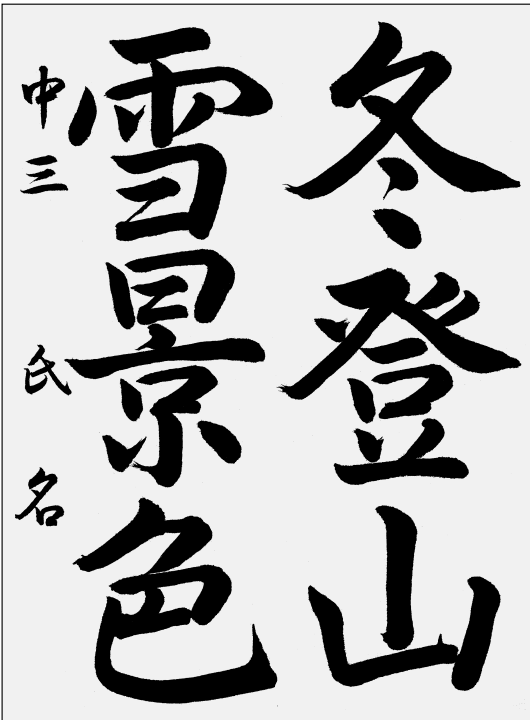 冬登山
雪景色
中三 氏名